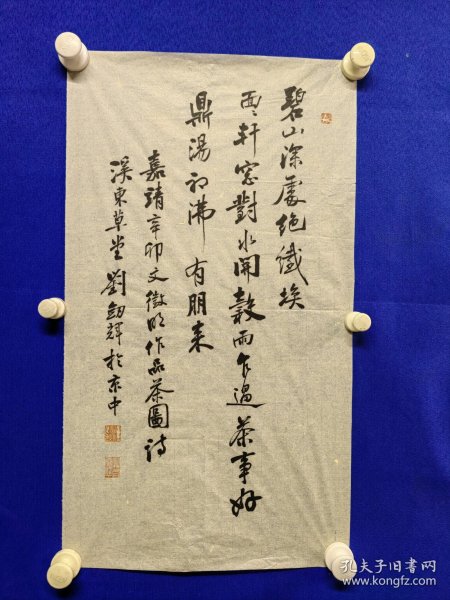 碧山深處絕纖埃
面〻軒窓對水開穀雨乍過茶事好
鼎湯初沸有朋來
嘉靖辛卯文徵明作品茶圖詩
溪東草堂劉劍輝於京中
孔夫子旧书网
www.kongfz.com